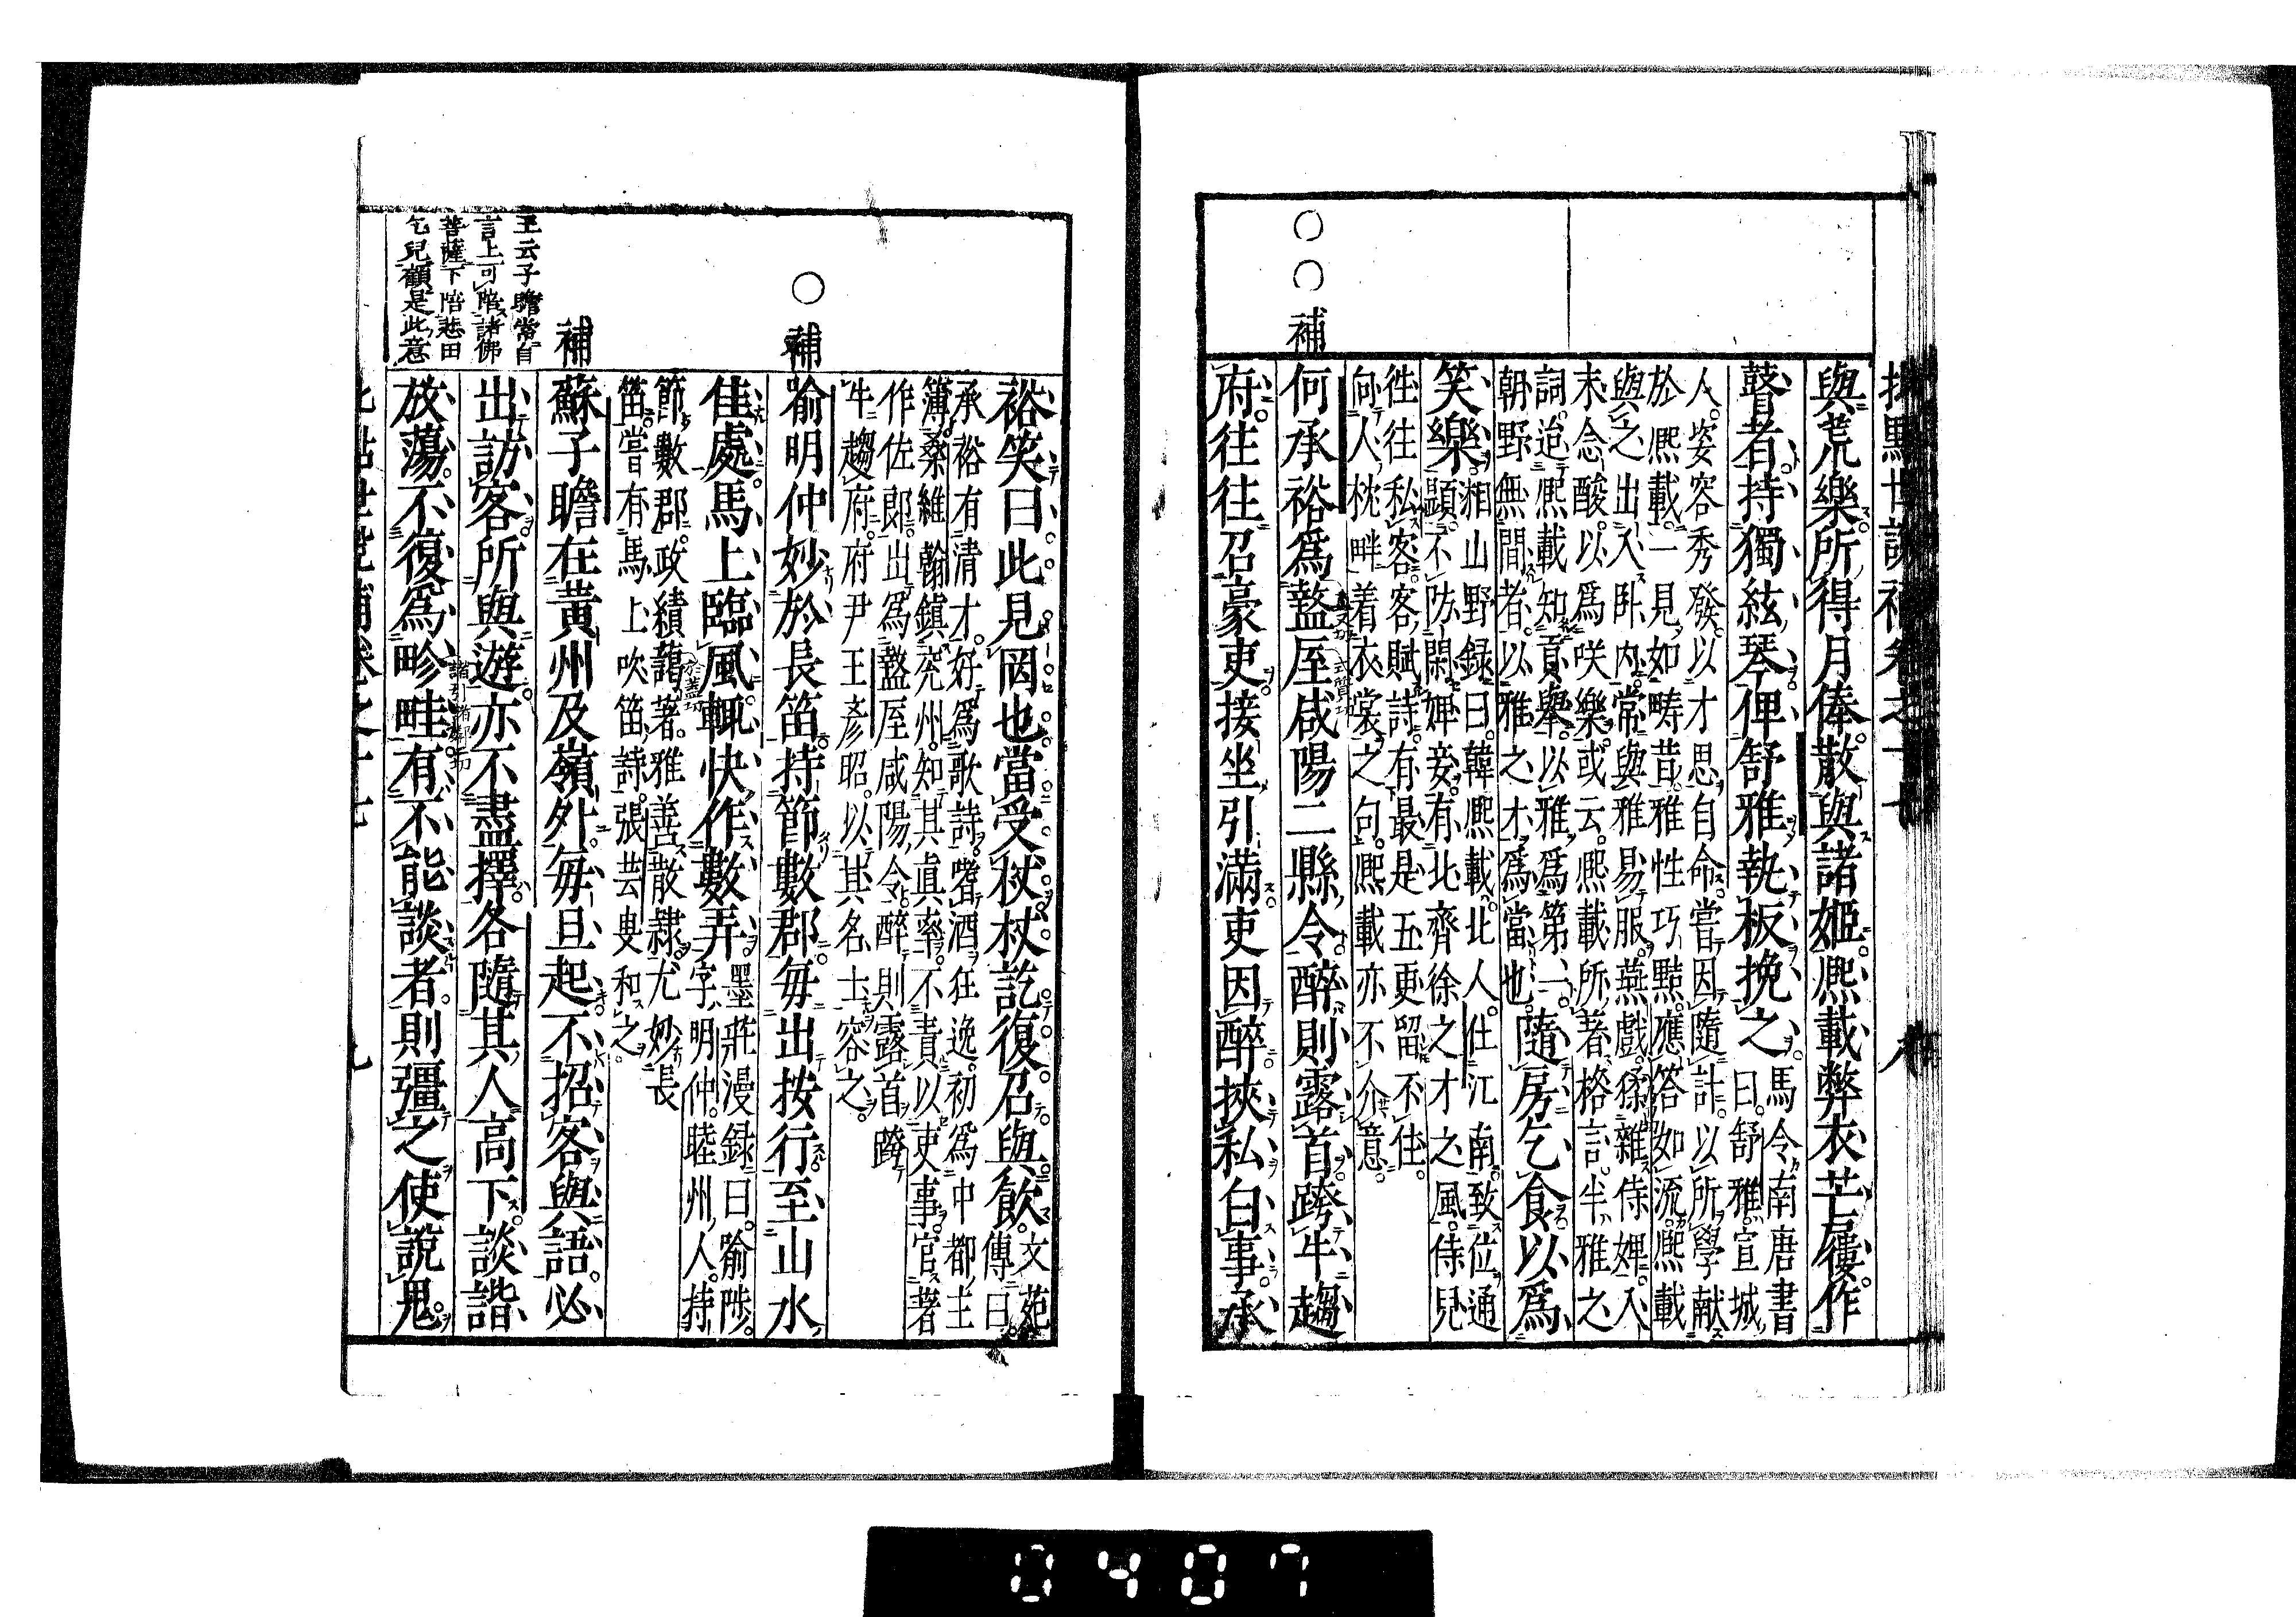 與荒樂所得月俸散與諸姬熙載弊衣芒屩作
瞽者持獨絃琴俾舒雅執板挽之
馬令南唐書
曰舒雅宣城
人姿容秀發以才思自命嘗因隨計以所學献
於熙載一見如疇昔雅性巧黠應答如流熙載
與之出入臥內常與雅易服燕戲猱雜侍婢入
末念酸以為咲樂或云熙載所著格言半雅之
詞迨熙載知貢舉以雅為第一
朝野無間者以雅之才為當也
隨房乞食以為
笑樂
湘山野録曰韓熙載北人仕江南致位通
顯不防閑婢妾有北齊徐之才之風侍兒
徃往私客客賦詩有最是五更留不住
向人枕畔着衣裳之句熙載亦不介意
○○補
何承裕為盩厔咸陽二縣令醉則露首跨牛趨
府往往召豪吏接坐引滿吏因醉挾私白事承
裕笑曰此見罔也當受杖杖訖復召與飲
文苑
傳曰
承裕有清才好為歌詩嗜酒狂逸初為中都主
簿桑維翰鎮兗州知其真率不責以吏事官著
作佐郎出為盩厔咸陽令醉則露首跨
牛趨府府尹王彥昭以其名士容之
○補
喻明仲妙於長笛持節數郡每出按行至山水
佳處馬上臨風輒快作數弄
墨莊漫録曰喻陟
字明仲睦州人持
節數郡政績藹著雅善散隷尤妙長
笛嘗有馬上吹笛詩張芸叟和之
補
蘇子瞻在黃州及嶺外每旦起不招客與語必
出訪客所與遊亦不盡擇各隨其人高下談諧
放蕩不復為畛畦有不能談者則彊之使說鬼
王云子瞻嘗自
言上可陪諸佛
菩薩下陪悲田
乞兒顧是此意